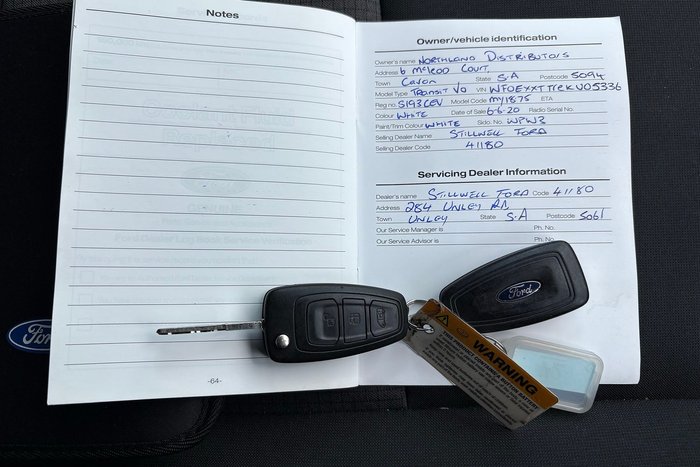 Notes
-64-
Owner/vehicle identification
Owner's name NORTHLAND DISTRIBUTORS
Address 6 McLEOD COURT
Town CAVAN State S.A Postcode 5094
Model Type TRANSIT VO VIN
Reg no. S193CEV Model Code MY1875 ETA
Colour WHITE Date of Sale 6-6-20 Radio Serial No.
Paint/Trim Colour WHITE Sido. No. WPW2
Selling Dealer Name STILLWELL FORD
Selling Dealer Code 41180
Servicing Dealer Information
Dealer's name STILLWELL FORD Code 41180
Address 284 UNLEY RD
Town UNLEY State S.A Postcode 5061
Our Service Manager is Ph. No.
Our Service Advisor is Ph. No.
Ford
Ford
WARNING